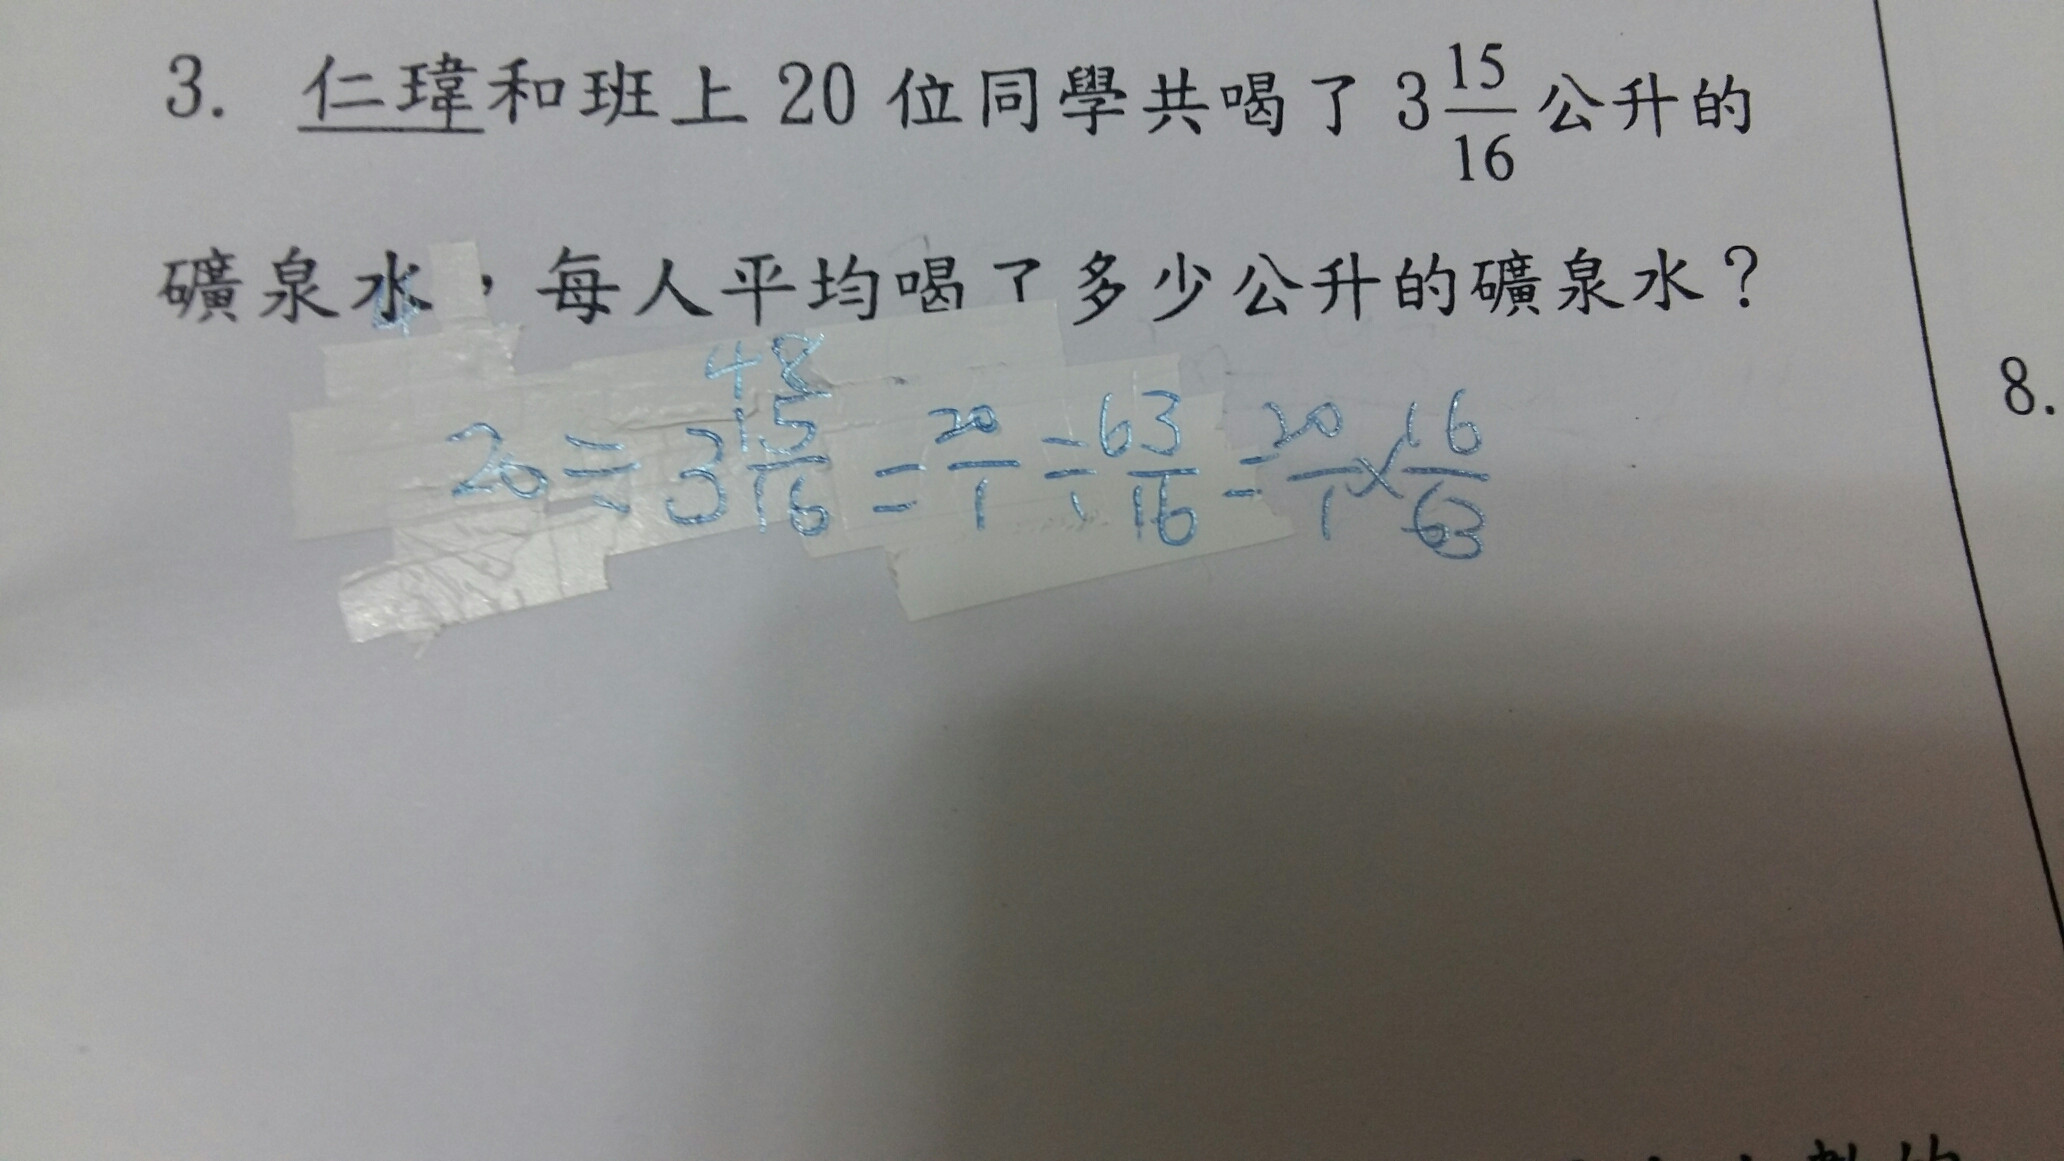 3. 仁瑋和班上 20 位同學共喝了 3 15/16 公升的
礦泉水，每人平均喝了多少公升的礦泉水？
48
20÷3 15/16 = 20/1 ÷ 63/16 = 20/1 × 16/63
8.